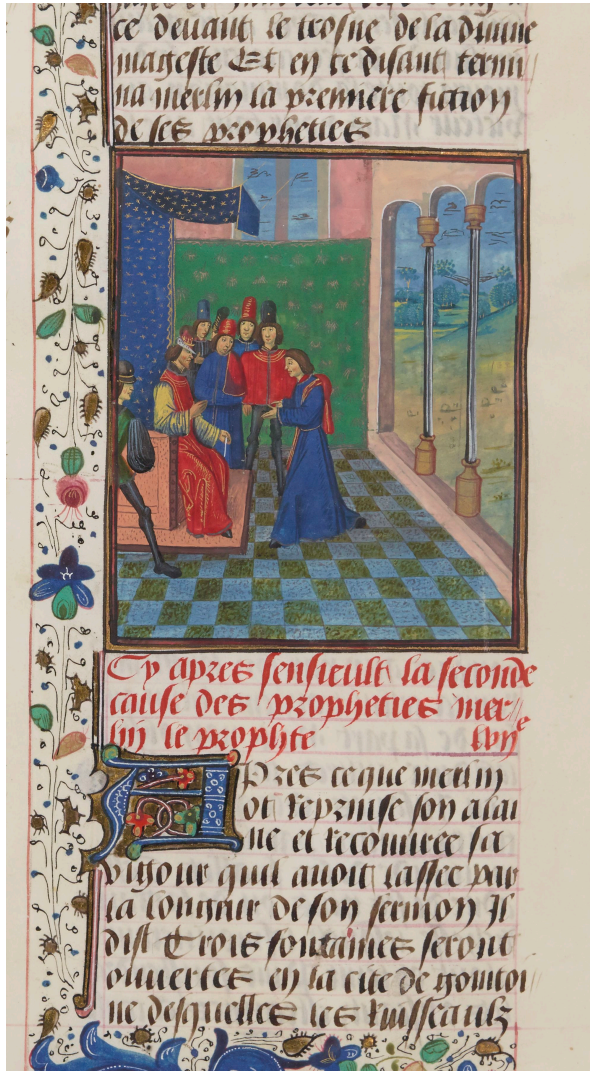 ce deuant le trosne de la diuine
mageste Et en ce disant termi
na merlin la premiere fiction
de ses propheties
Cy apres sensieult la seconde
cause des propheties mer
lin le prophte
Apres ce que merlin
ot Reprinse son alai
ne et Recouuree sa
vigour quil auoit lassee par
la longeur de son sermon Jl
dist Trois fontaines seront
ouuertes en la cite de
ne desquelles les Ruisseaulz